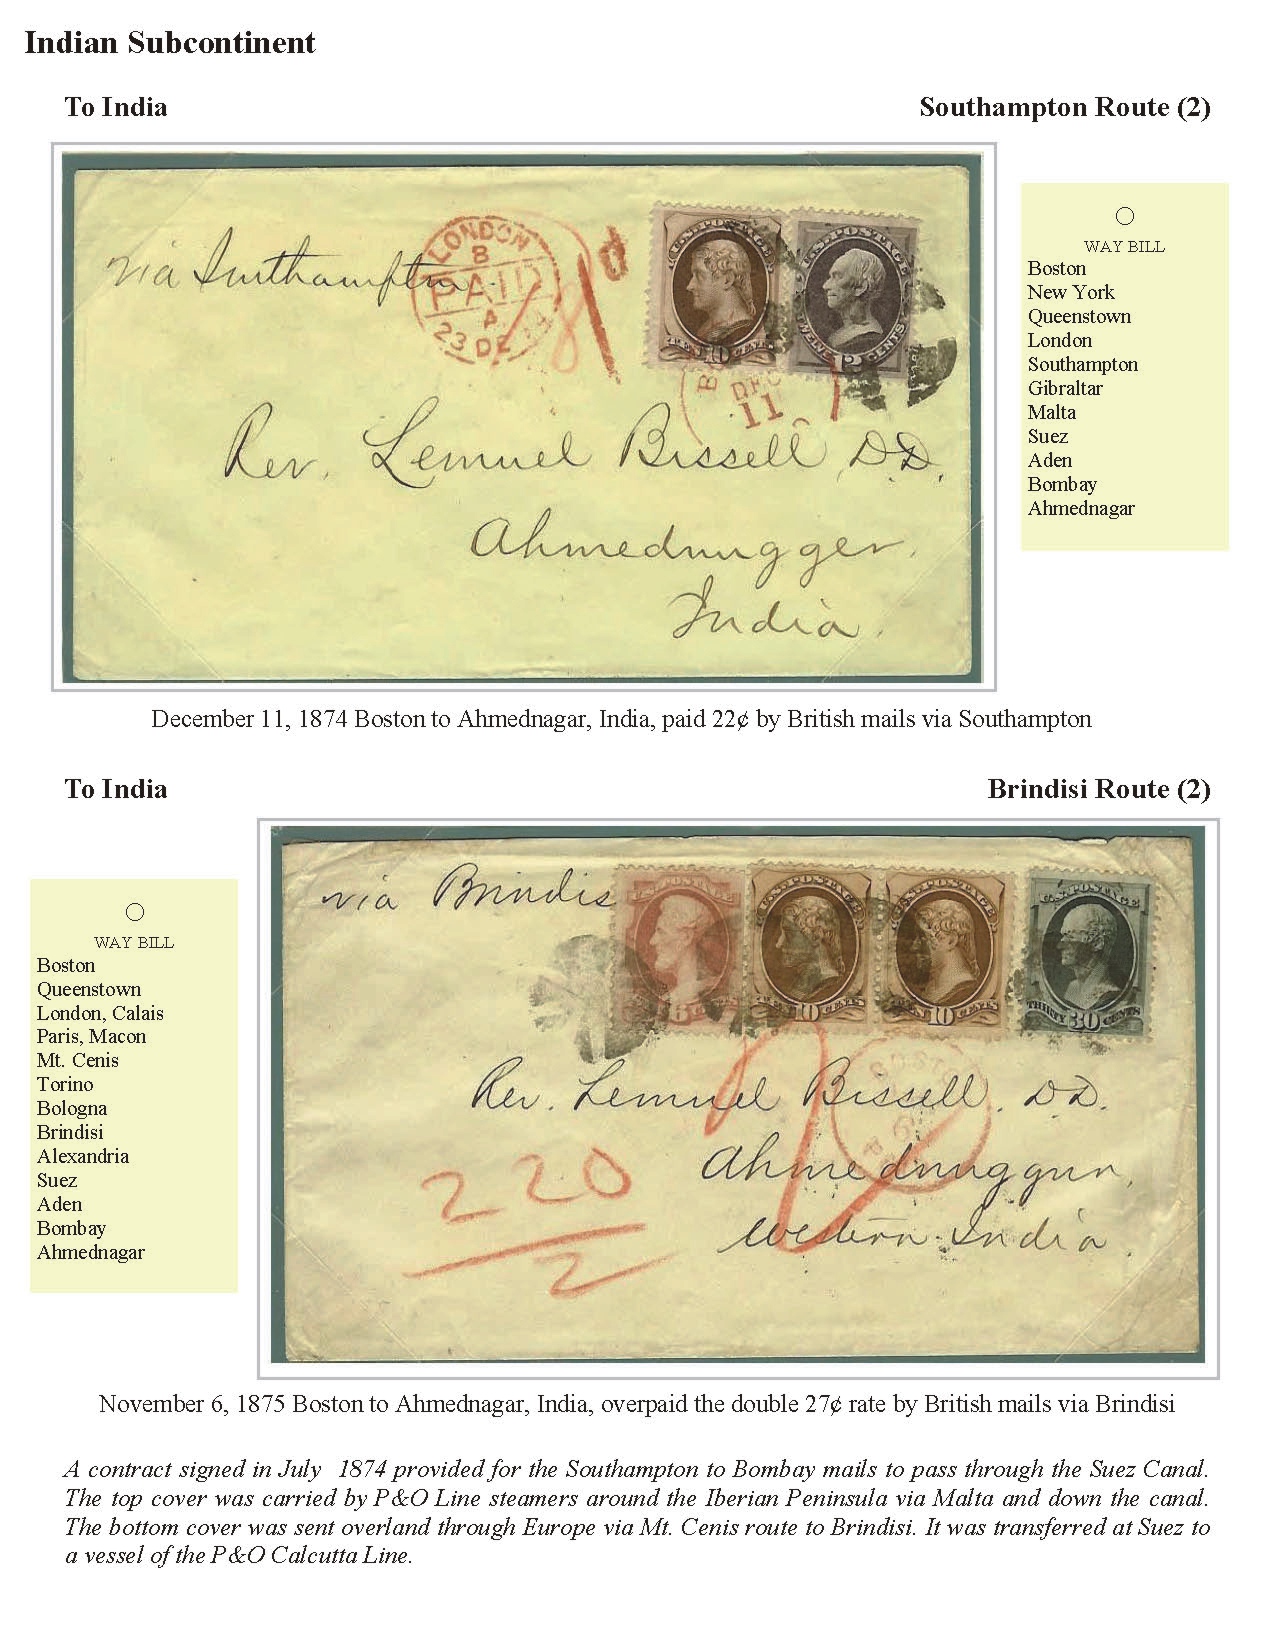 Indian Subcontinent
To India
Southampton Route (2)
via Southampton
LONDON
8
PAID
A
23 DE
U.S. POSTAGE
U.S. POSTAGE
TEN 10 CENTS
TWELVE 12 CENTS
BO
DEC
11
Rev. Lemuel Bissell, D.D.,
Ahmednugger,
India.
WAY BILL
Boston
New York
Queenstown
London
Southampton
Gibraltar
Malta
Suez
Aden
Bombay
Ahmednagar
December 11, 1874 Boston to Ahmednagar, India, paid 22¢ by British mails via Southampton
To India
Brindisi Route (2)
WAY BILL
Boston
Queenstown
London, Calais
Paris, Macon
Mt. Cenis
Torino
Bologna
Brindisi
Alexandria
Suez
Aden
Bombay
Ahmednagar
via Brindisi
U.S. POSTAGE
U.S. POSTAGE
U.S. POSTAGE
6 CENTS
TEN 10 CENTS
10 CENTS
THIRTY 30 CENTS
Rev. Lemuel Bissell, D.D.
Ahmednuggur,
Western India.
220
2
November 6, 1875 Boston to Ahmednagar, India, overpaid the double 27¢ rate by British mails via Brindisi
A contract signed in July 1874 provided for the Southampton to Bombay mails to pass through the Suez Canal.
The top cover was carried by P&O Line steamers around the Iberian Peninsula via Malta and down the canal.
The bottom cover was sent overland through Europe via Mt. Cenis route to Brindisi. It was transferred at Suez to
a vessel of the P&O Calcutta Line.